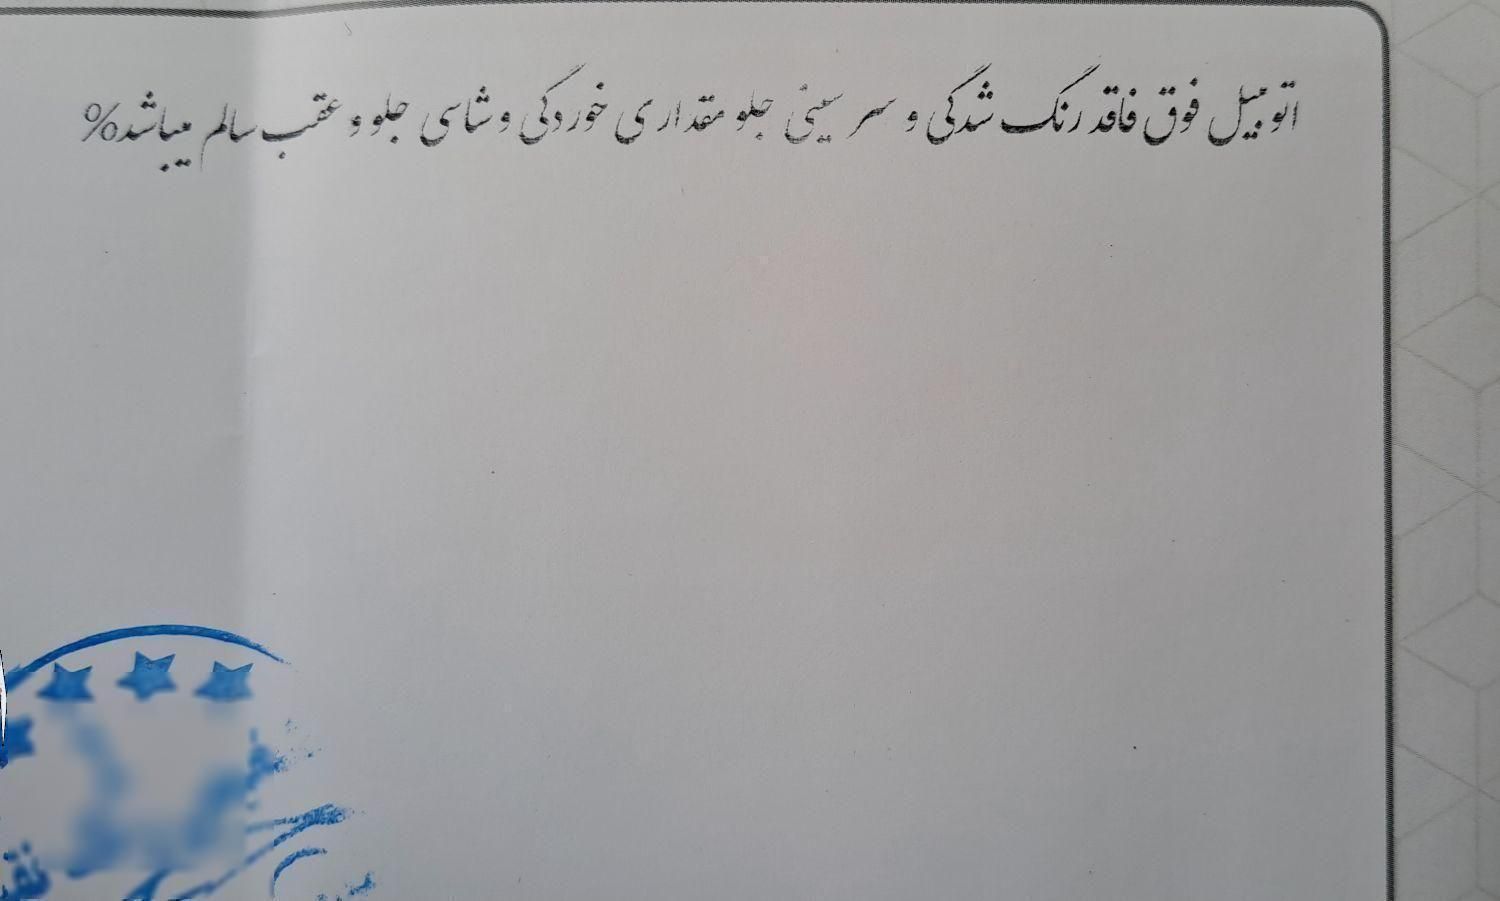 اتومبیل فوق فاقد رنگ شدگی و سر سینی جلو مقداری خوردگی و شاسی جلو و عقب سالم میباشد%